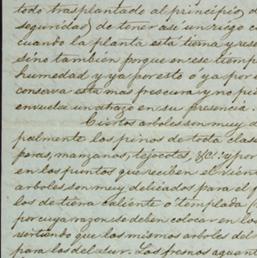 todo trasplantado al principio, de
seguridad, de tener así un riego c
cuando la planta está tierna y res
sino tambien porque en ese tiemp
humedad y ya por esto ó ya por é
conserva está mas frescura y no pu
en su presencia.
Ciertos arboles son muy d
palmente los pinos de toda clase
peras, manzanos, tejocotes, &c. y por
en los puntos que reciben el vien
arboles son muy delicados para el f
los de tierra caliente ó templada
por cuya razon se deben colocar en lo
virtiendo que los mismos arboles del
para los del Sur. Los fresnos aguant